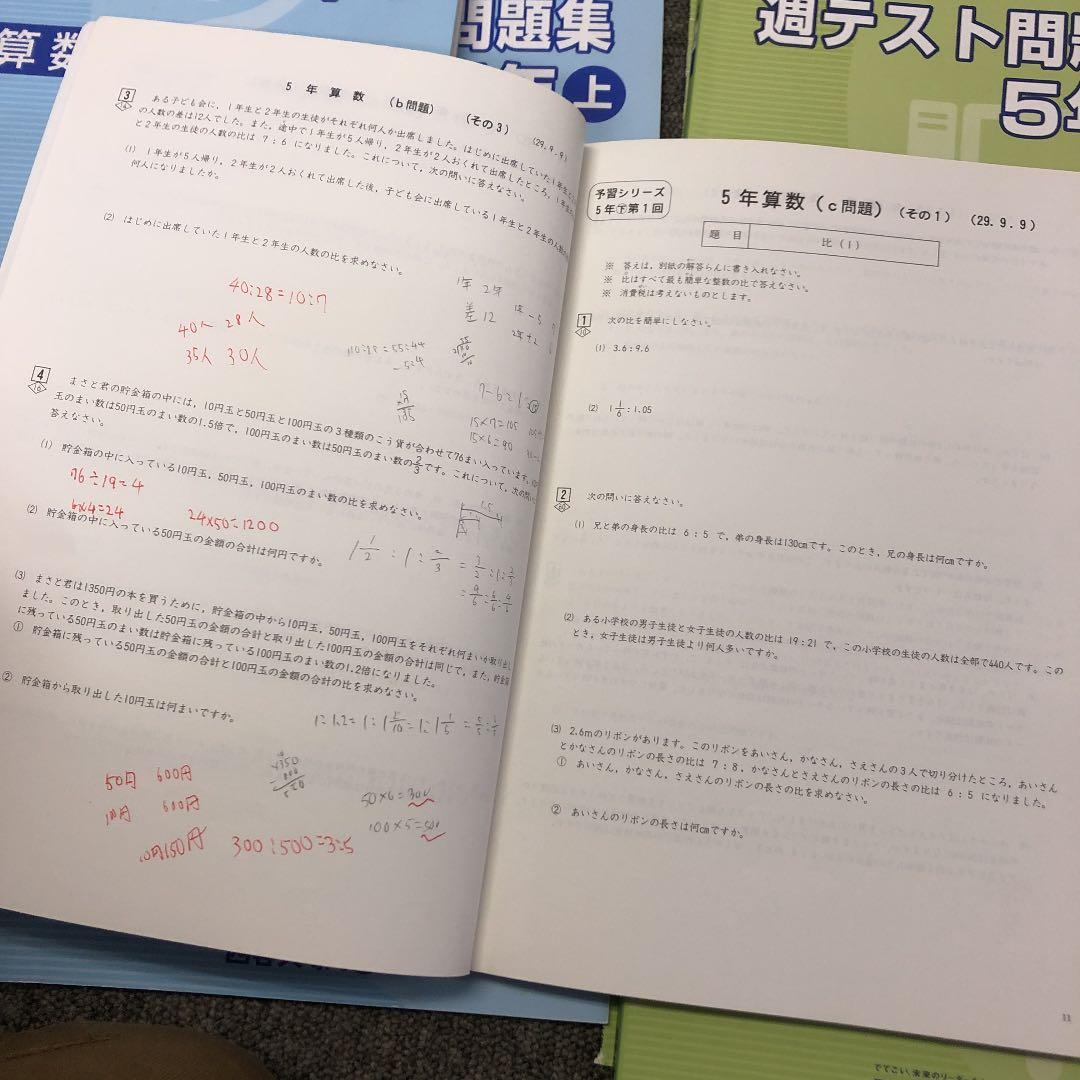 算数
問題集
年上
週テスト問題
5年
5年算数 (b問題) (その3) (29.9.9)
3
ある子ども会に，1年生と2年生の生徒がそれぞれ何人か出席しました。はじめに出席していた1年生と
の人数の差は12人でした。また，途中で1年生が5人帰り，2年生が2人おくれて出席したところ，1年生の
と2年生の生徒の人数の比は 7：6 になりました。これについて，次の問いに答えなさい。
(1) 1年生が5人帰り，2年生が2人おくれて出席した後，子ども会に出席している1年生と2年生の人数の
何人になりましたか。
(2) はじめに出席していた1年生と2年生の人数の比を求めなさい。
40:28=10:7
40人 28人
35人 30人
1年 2年
差12
7-6=1
15×7=105
15×6=90
4
まさと君の貯金箱の中には，10円玉と50円玉と100円玉の3種類のこう貨が合わせて76まい入っています。
玉のまい数は50円玉のまい数の1.5倍で，100円玉のまい数は50円玉のまい数の2/3です。これについて，次の問い
答えなさい。
(1) 貯金箱の中に入っている10円玉，50円玉，100円玉のまい数の比を求めなさい。
76÷19=4
6×4=24
24×50=1200
(2) 貯金箱の中に入っている50円玉の金額の合計は何円ですか。
1 1/2 : 1 : 2/3 = 3/2 : 1 : 2/3
= 9/6 : 6/6 : 4/6
(3) まさと君は1350円の本を買うために，貯金箱の中から10円玉，50円玉，100円玉をそれぞれ何まいか取り出し
ました。このとき，取り出した50円玉の金額の合計と取り出した100円玉の金額の合計は同じで，また，貯金箱
に残っている50円玉のまい数は貯金箱に残っている100円玉のまい数の1.2倍になりました。
① 貯金箱に残っている50円玉の金額の合計と100円玉の金額の合計の比を求めなさい。
② 貯金箱から取り出した10円玉は何まいですか。
1:1.2=1:1 2/10=1:1 1/5
50円 600円
100円 600円
10円150円
300:500=3:5
50×6=300
100×5=500
予習シリーズ
5年下第1回
5年算数(c問題) (その1) (29.9.9)
題目 比(1)
※ 答えは，別紙の解答らんに書き入れなさい。
※ 比はすべて最も簡単な整数の比で答えなさい。
※ 消費税は考えないものとします。
1
次の比を簡単にしなさい。
(1) 3.6：9.6
(2) 1 1/6：1.05
2
次の問いに答えなさい。
(1) 兄と弟の身長の比は 6：5 で，弟の身長は130cmです。このとき，兄の身長は何cmですか。
(2) ある小学校の男子生徒と女子生徒の人数の比は 19：21 で，この小学校の生徒の人数は全部で440人です。この
とき，女子生徒は男子生徒より何人多いですか。
(3) 2.6mのリボンがあります。このリボンをあいさん，かなさん，さえさんの3人で切り分けたところ，あいさん
とかなさんのリボンの長さの比は 7：8，かなさんとさえさんのリボンの長さの比は 6：5 になりました。
① あいさん，かなさん，さえさんのリボンの長さの比を求めなさい。
② あいさんのリボンの長さは何cmですか。
11
でてこい、未来のリーダー